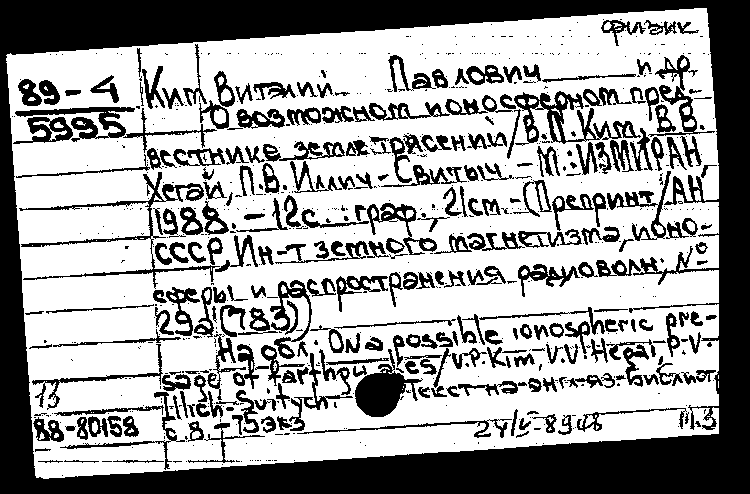 физик
89-4
5995
Ким, Виталий Павлович и др.
О возможном ионосферном пред-
вестнике землетрясений / В.П. Ким, В.В.
Хегай, П.В. Иллич-Свитыч. - М.: ИЗМИРАН,
1988. - 12с. : граф.; 21см. - (Препринт / АН
СССР, Ин-т земного магнетизма, ионо-
сферы и распространения радиоволн; №
29а (783))
На обл.: On a possible ionospheric pre-
sage of earthquakes / V.P. Kim, V.V. Hegai, P.V.
Illich-Svitych. - Текст на англ. яз. Библиогр
с. 8. - 75 экз
13
88-80158
М.З